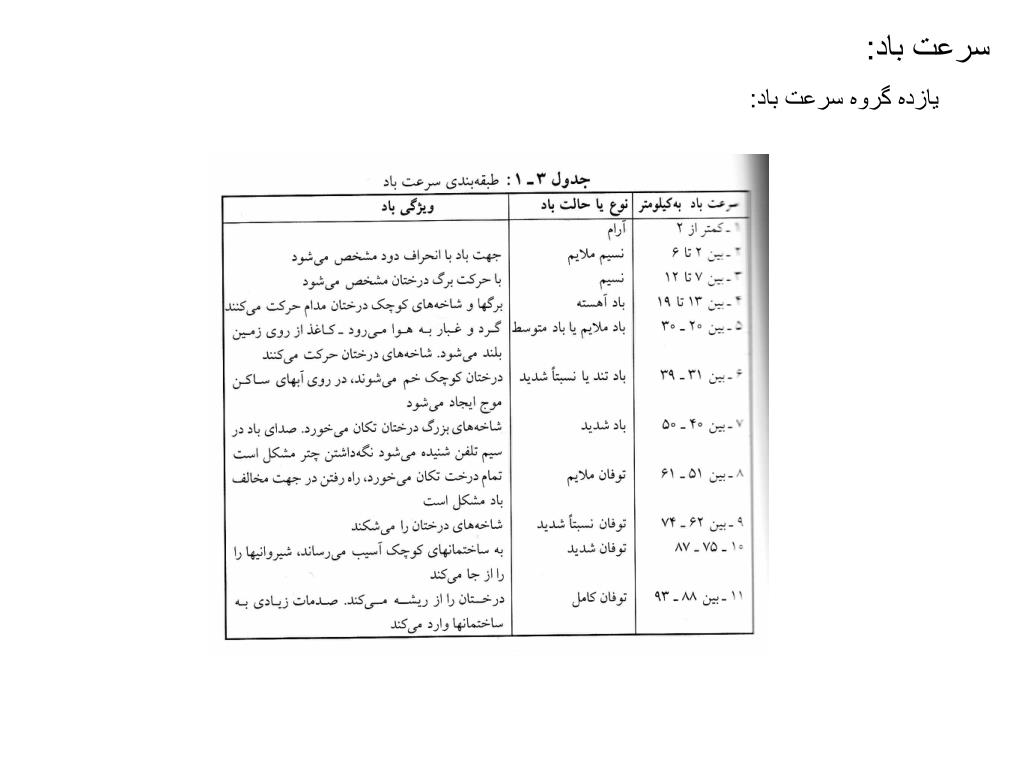 سرعت باد:
یازده گروه سرعت باد:
جدول ۳ ـ ۱: طبقه‌بندی سرعت باد
سرعت باد به‌کیلومتر نوع یا حالت باد ویژگی باد
۱ ـ کمتر از ۲ آرام
۲ ـ بین ۲ تا ۶ نسیم ملایم جهت باد با انحراف دود مشخص می‌شود
۳ ـ بین ۷ تا ۱۲ نسیم با حرکت برگ درختان مشخص می‌شود
۴ ـ بین ۱۳ تا ۱۹ باد آهسته برگها و شاخه‌های کوچک درختان مدام حرکت می‌کنند
۵ ـ بین ۲۰ ـ ۳۰ باد ملایم یا باد متوسط گرد و غبار به هوا می‌رود ـ کاغذ از روی زمین
بلند می‌شود. شاخه‌های درختان حرکت می‌کنند
۶ ـ بین ۳۱ ـ ۳۹ باد تند یا نسبتاً شدید درختان کوچک خم می‌شوند، در روی آبهای ساکن
موج ایجاد می‌شود
۷ ـ بین ۴۰ ـ ۵۰ باد شدید شاخه‌های بزرگ درختان تکان می‌خورد. صدای باد در
سیم تلفن شنیده می‌شود نگه‌داشتن چتر مشکل است
۸ ـ بین ۵۱ ـ ۶۱ توفان ملایم تمام درخت تکان می‌خورد، راه رفتن در جهت مخالف
باد مشکل است
۹ ـ بین ۶۲ ـ ۷۴ توفان نسبتاً شدید شاخه‌های درختان را می‌شکند
۱۰ ـ ۷۵ ـ ۸۷ توفان شدید به ساختمانهای کوچک آسیب می‌رساند، شیروانیها را
را از جا می‌کند
۱۱ ـ بین ۸۸ ـ ۹۳ توفان کامل درختان را از ریشه می‌کند. صدمات زیادی به
ساختمانها وارد می‌کند